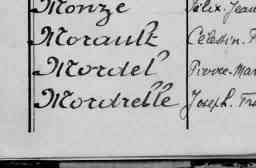 Monze Félix. Jean
Morault Célestin. F
Mordel Pierre-Mar
Mordrelle Joseph. Fra